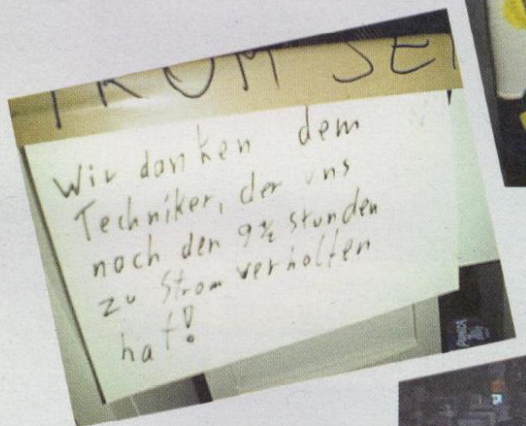 Wir danken dem
Techniker, der uns
nach den 9½ Stunden
zu Strom verholfen
hat!